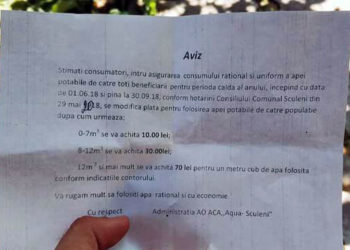 Aviz
Stimati consumatori, intru asigurarea consumului rational si uniform a apei
potabile de catre toti beneficiarii pentru perioada calda al anului, incepind cu data
de 01.06.18 si pina la 30.09.18, conform hotaririi Consiliului Comunal Sculeni din
29 mai 18, se modifica plata pentru folosirea apei potabile de catre populatie
dupa cum urmeaza:
0-7m³ se va achita 10.00 lei;
8-12m³ se va achita 30.00lei;
12m³ si mai mult se va achita 70 lei pentru un metru cub de apa folosita
conform indicatiile contorului.
Va rugam mult sa folositi apa rational si cu economie
Cu respect Administratia AO ACA„Aqua- Sculeni"